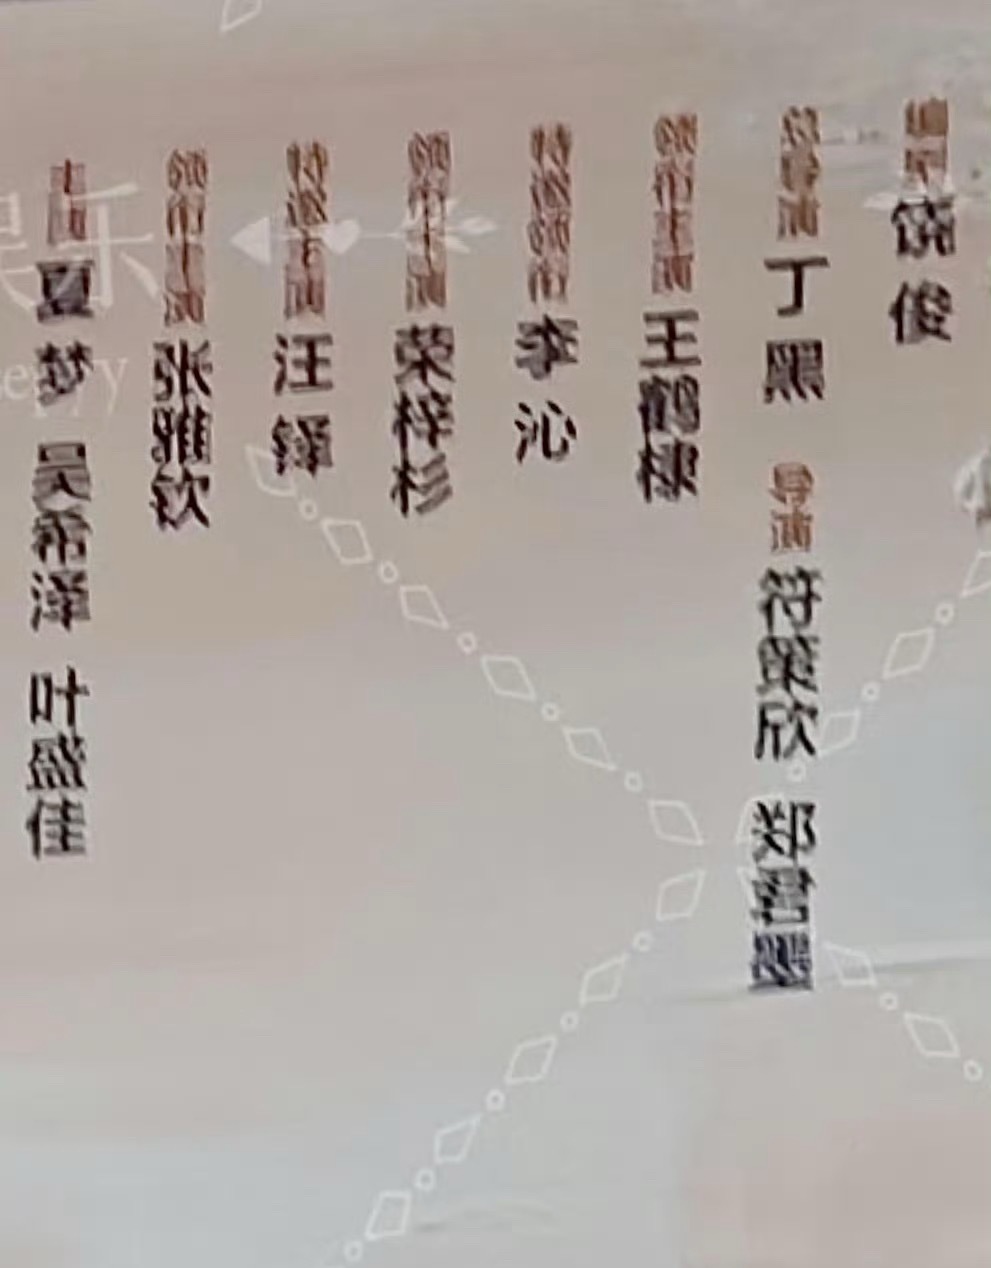 编剧 饶俊
总导演 丁黑 导演 符策欣 郑
领衔主演 王鹤棣
特邀领衔 李沁
领衔主演 荣梓杉
特邀主演 汪铎
领衔主演 张雅钦
主演 夏梦 吴希泽 叶盛佳
乐